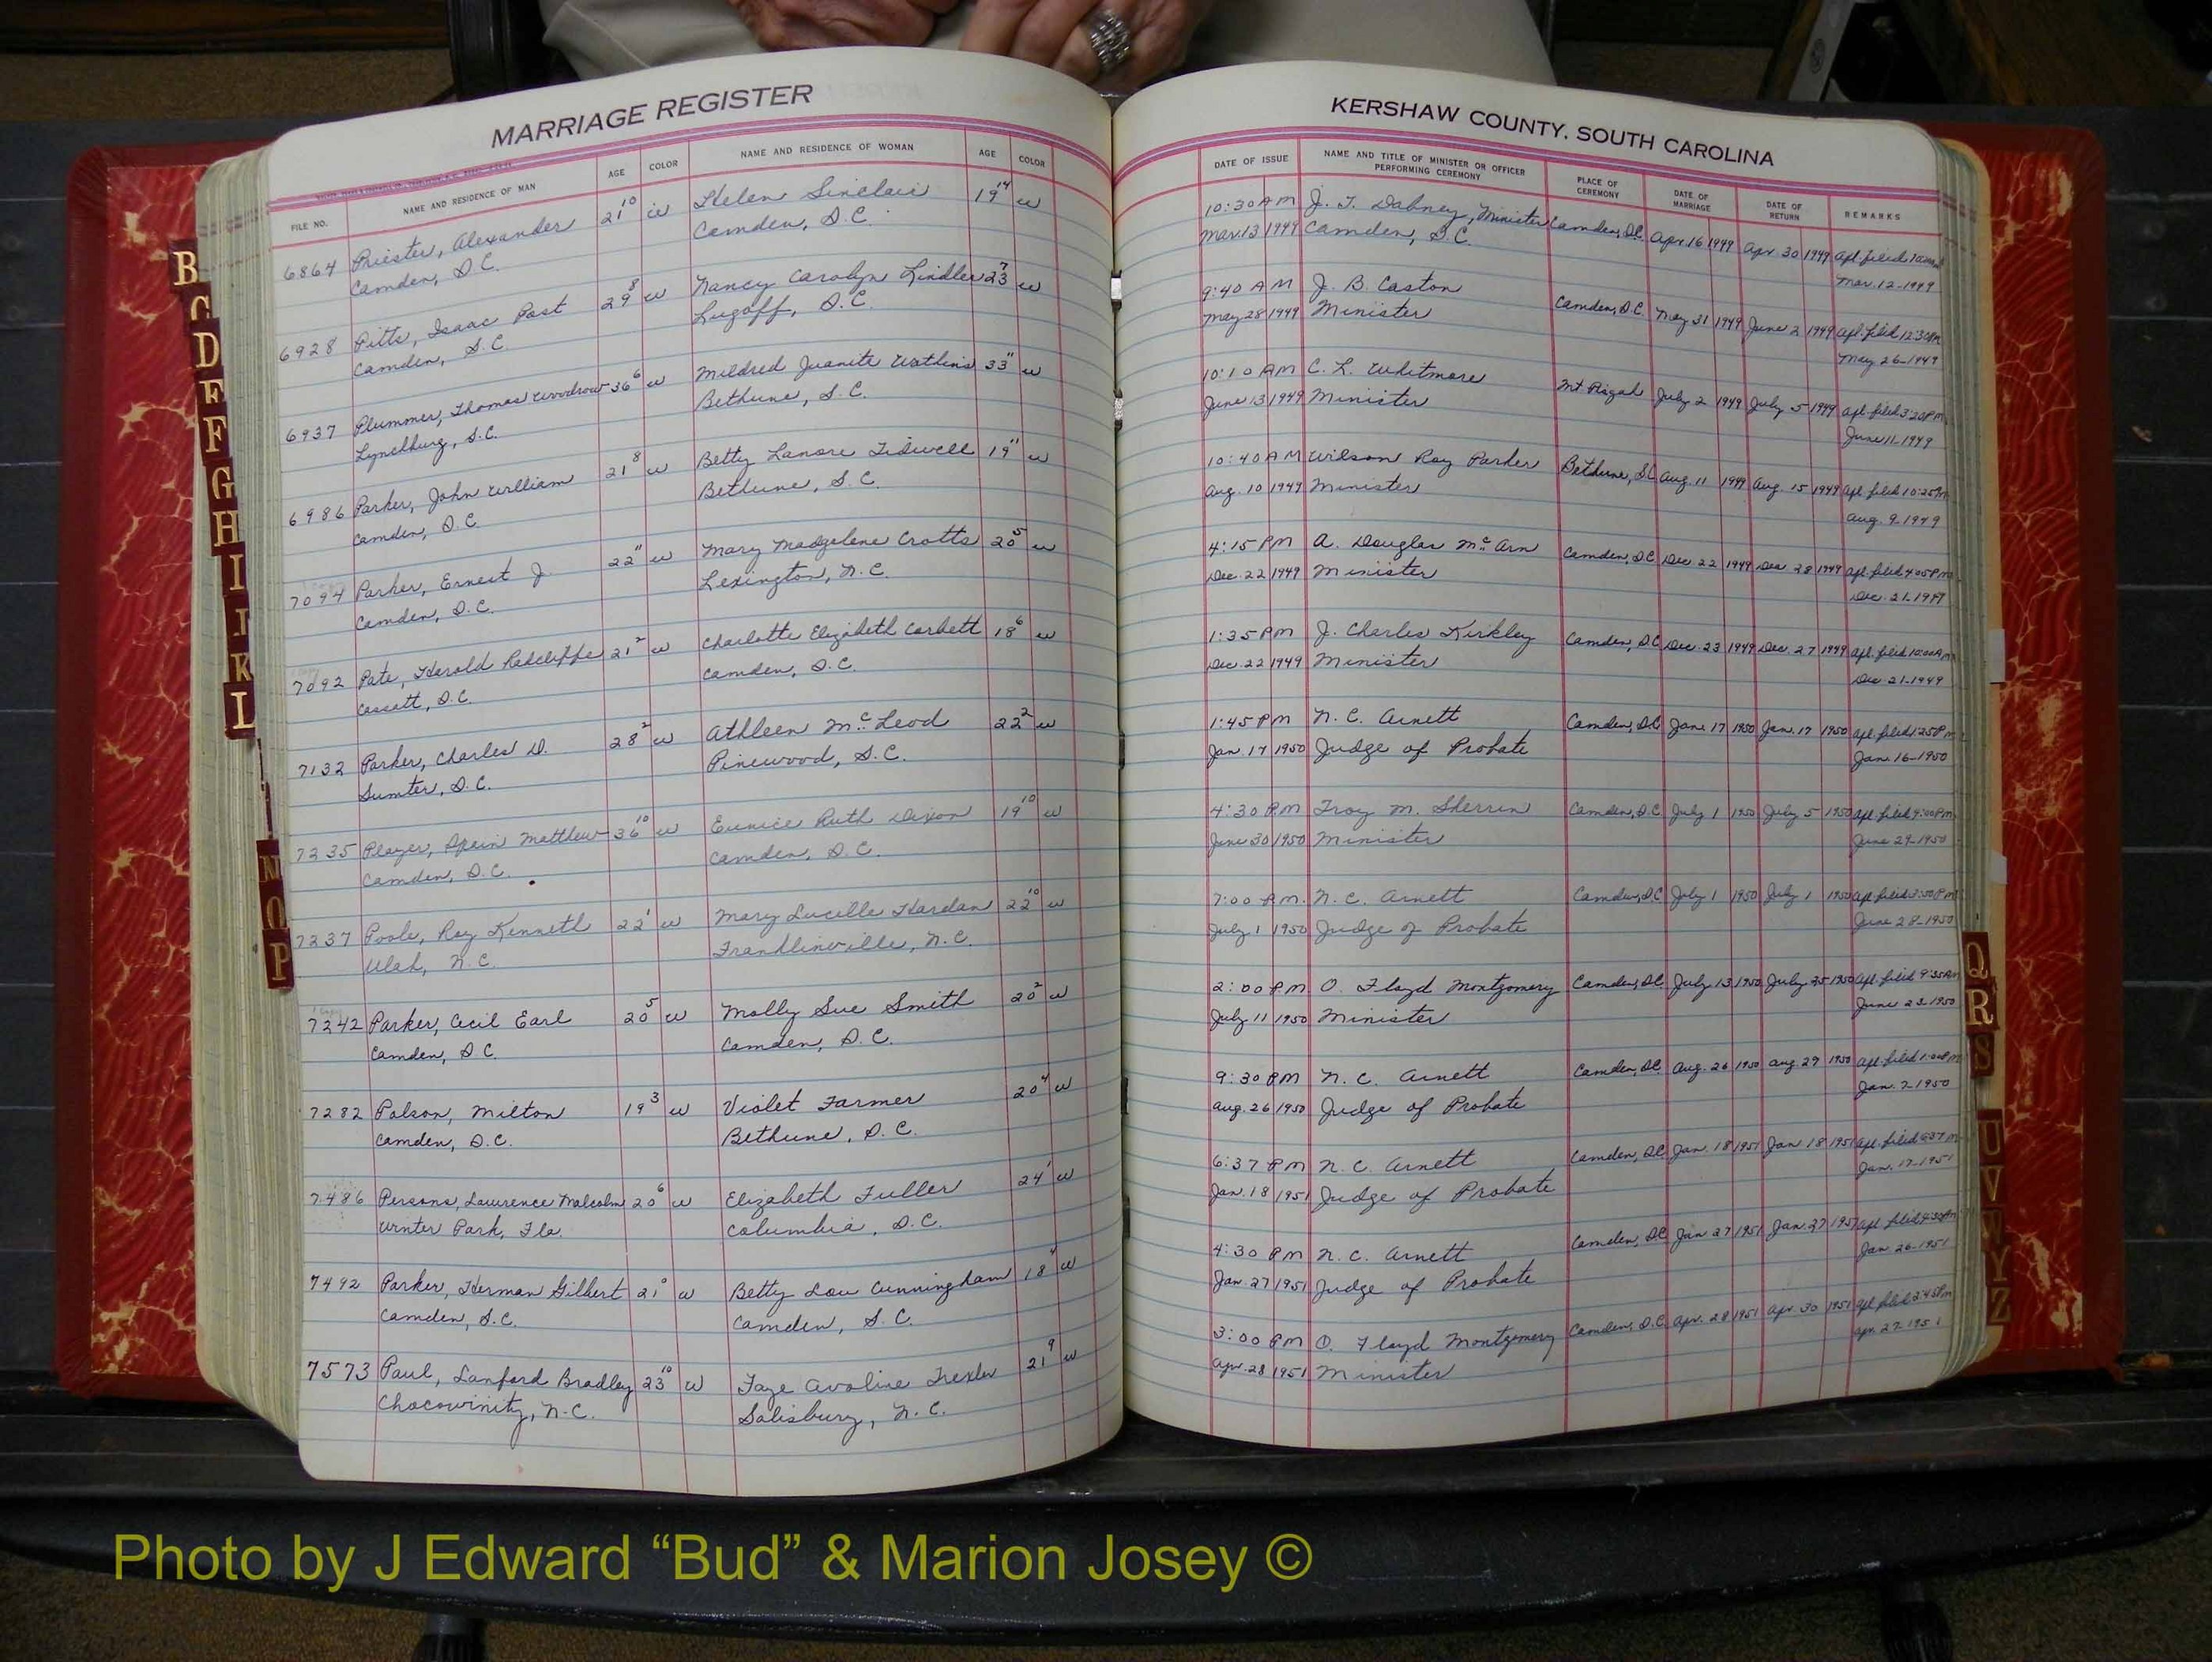 MARRIAGE REGISTER
FILE NO. NAME AND RESIDENCE OF MAN AGE COLOR NAME AND RESIDENCE OF WOMAN AGE COLOR
6864 Priester, Alexander 21 10 w Helen Sinclair 19 4 w
Camden, S.C. Camden, S.C.
6928 Pitts, Isaac Post 29 8 w Nancy Carolyn Lindler 23 7 w
Camden, S.C. Lugoff, S.C.
6937 Plummer, Thomas Woodrow 36 6 w Mildred Juanita Watkins 33 11 w
Lynchburg, S.C. Bethune, S.C.
6986 Parker, John William 21 8 w Betty Lanore Tidwell 19 11 w
Camden, S.C. Bethune, S.C.
7094 Parker, Ernest J. 22 11 w Mary Madgelene Crotts 20 5 w
Camden, S.C. Lexington, N.C.
7092 Pate, Harold Radcliffe 21 2 w Charlotte Elizabeth Corbett 18 6 w
Cassatt, S.C. Camden, S.C.
7132 Parker, Charles D. 28 2 w Athleen McLeod 22 2 w
Sumter, S.C. Pinewood, S.C.
7235 Player, Spein Matthew 36 10 w Eunice Ruth Dixon 19 10 w
Camden, S.C. Camden, S.C.
7237 Poole, Roy Kenneth 22 1 w Mary Lucille Hardan 22 10 w
Ulah, N.C. Franklinville, N.C.
7242 Parker, Cecil Earl 20 5 w Molly Sue Smith 20 2 w
Camden, S.C. Camden, S.C.
7282 Polson, Milton 19 3 w Violet Farmer 20 4 w
Camden, S.C. Bethune, S.C.
7486 Persons, Lawrence Malcolm 20 6 w Elizabeth Fuller 24 1 w
Winter Park, Fla. Columbia, S.C.
7492 Parker, Herman Gilbert 21 0 w Betty Lou Cunningham 18 4 w
Camden, S.C. Camden, S.C.
7573 Paul, Lanford Bradley 23 10 w Faye Avoline Trexler 21 9 w
Chocowinity, N.C. Salisbury, N.C.
KERSHAW COUNTY, SOUTH CAROLINA
DATE OF ISSUE NAME AND TITLE OF MINISTER OR OFFICER PERFORMING CEREMONY PLACE OF CEREMONY DATE OF MARRIAGE DATE OF RETURN REMARKS
10:30 AM J. T. Dabney, Minister Camden, S.C. Apr 16 1949 Apr 30 1949 apl. filed
Mar. 13 1949 Camden, S.C. Mar. 12-1949
9:40 AM J. B. Caston Camden, S.C. May 31 1949 June 2 1949 apl. filed 12:30PM
May 28 1949 Minister May 26-1949
10:10 AM C. L. Whitmore Mt. Pisgah July 2 1949 July 5 1949 apl. filed 3:20PM
June 13 1949 Minister June 11-1949
10:40 AM Wilson Roy Parker Bethune, S.C. Aug. 11 1949 Aug. 15 1949 apl. filed 10:25
Aug. 10 1949 Minister Aug. 9-1949
4:15 PM A. Douglas McArn Camden, S.C. Dec. 22 1949 Dec. 28 1949 apl. filed 4:05PM
Dec. 22 1949 Minister Dec. 21-1949
1:35 PM J. Charles Kirkley Camden, S.C. Dec. 23 1949 Dec. 27 1949 apl. filed 10:00AM
Dec. 22 1949 Minister Dec 21-1949
1:45 PM N. C. Arnett Camden, S.C. Jan. 17 1950 Jan. 17 1950 apl. filed 1:25PM
Jan. 17 1950 Judge of Probate Jan. 16-1950
4:30 P.M Troy M. Sherrin Camden, S.C. July 1 1950 July 5 1950 apl. filed 4:00PM
June 30 1950 Minister June 29-1950
7:00 P.M. N. C. Arnett Camden, S.C. July 1 1950 July 1 1950 apl. filed 3:50PM
July 1 1950 Judge of Probate June 28-1950
2:00 PM O. Floyd Montgomery Camden, S.C. July 13 1950 July 25 1950 apl. filed 9:35AM
July 11 1950 Minister June 23-1950
9:30 PM N. C. Arnett Camden, S.C. Aug. 26 1950 Aug 29 1950 apl. filed 1:00PM
Aug. 26 1950 Judge of Probate Jan. 7-1950
6:37 PM N. C. Arnett Camden, S.C. Jan. 18 1951 Jan 18 1951 apl. filed 6:37
Jan. 18 1951 Judge of Probate Jan. 17-1951
4:30 PM N. C. Arnett Camden, S.C. Jan 27 1951 Jan. 27 1951 apl. filed 4:30PM
Jan. 27 1951 Judge of Probate Jan 26-1951
3:00 PM O. Floyd Montgomery Camden, S.C. Apr. 28 1951 Apr. 30 1951 apl. filed 2:45PM
Apr. 28 1951 Minister Apr. 27-1951
B
D
E
F
G
H
I
J
K
L
N
O
P
Q
R
S
U
V
W
Y
Z
Photo by J Edward “Bud” & Marion Josey ©